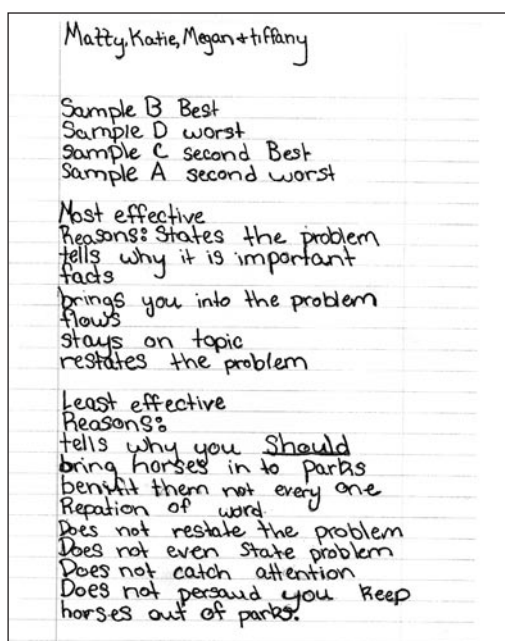 Matty, Katie, Megan + tiffany
Sample B Best
Sample D worst
Sample C second Best
Sample A second worst
Most effective
Reasons: States the problem
tells why it is important
facts
brings you into the problem
flows
stays on topic
restates the problem
Least effective
Reasons:
tells why you Should
bring horses in to parks
benifit them not every one
Repation of word
Does not restate the problem
Does not even state problem
Does not catch attention
Does not persaud you keep
horses out of parks.